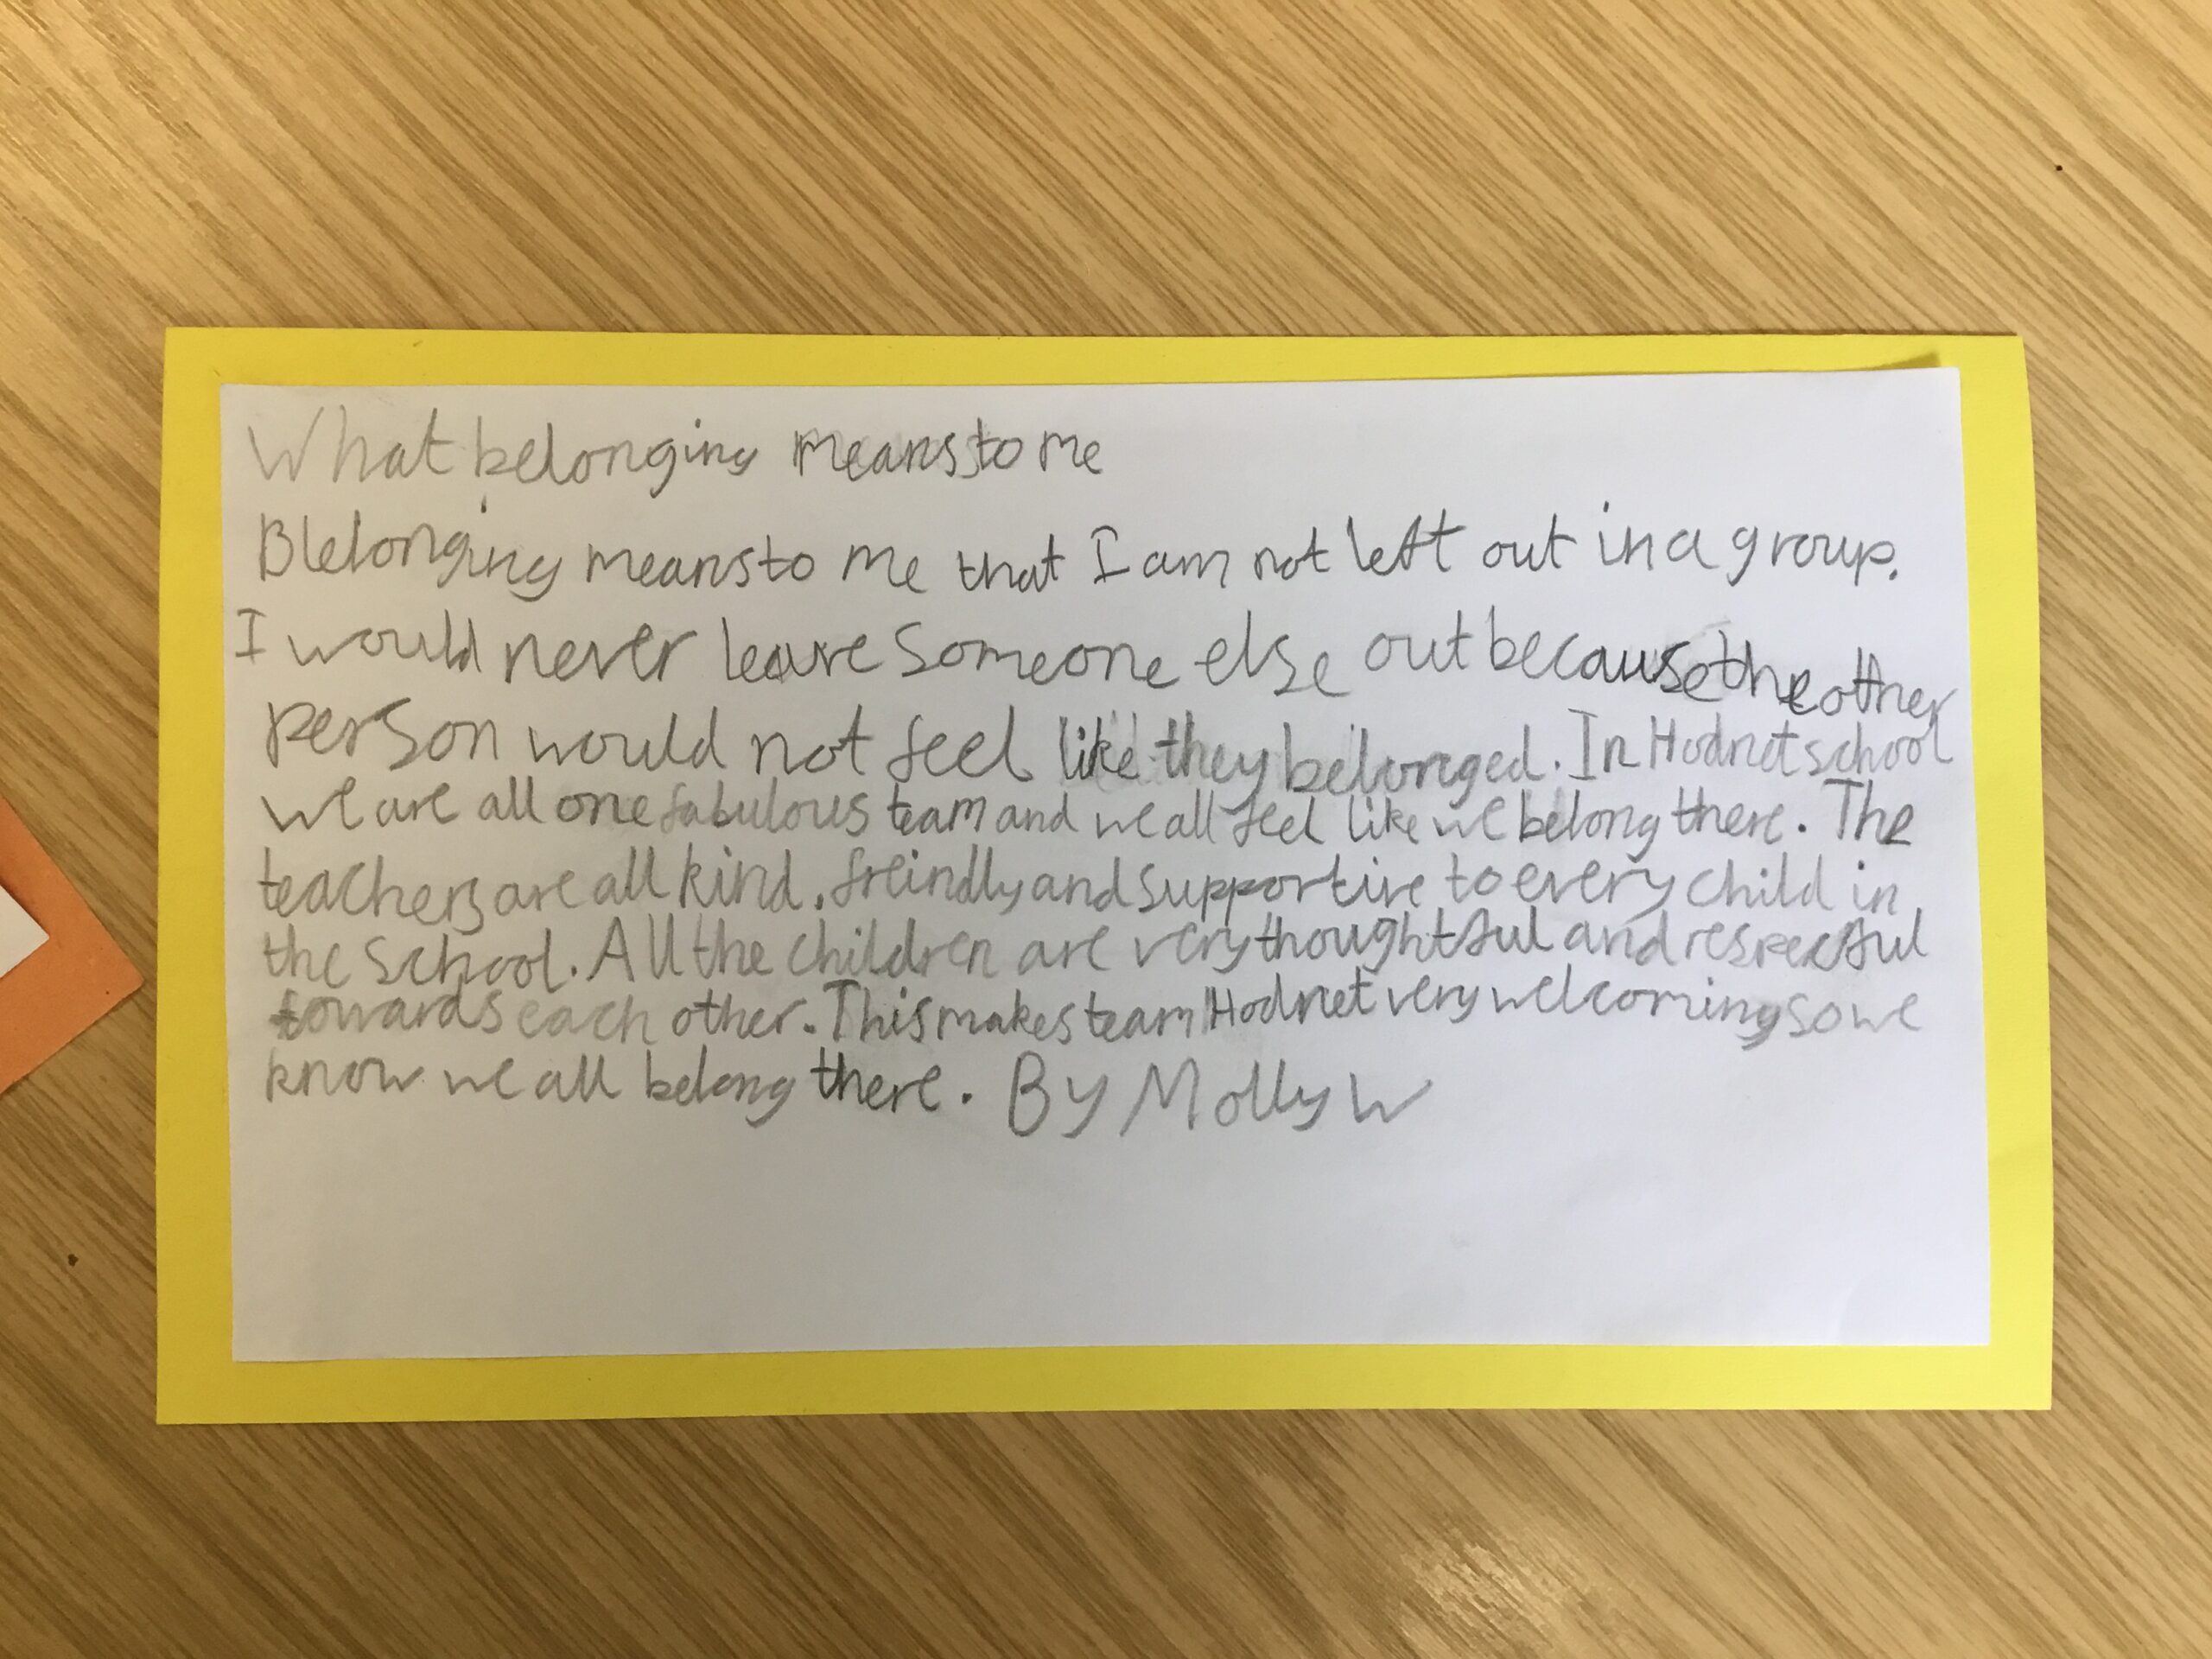 What belonging means to me
Blelonging means to me that I am not left out in a group.
I would never leave someone else out because the other
person would not feel like they belonged. In Hodnet school
we are all one fabulous team and we all feel like we belong there. The
teachers are all kind, freindly and supportive to every child in
the school. All the children are very thoughtful and respectful
towards each other. This makes team Hodnet very welcoming so we
know we all belong there. By Molly W